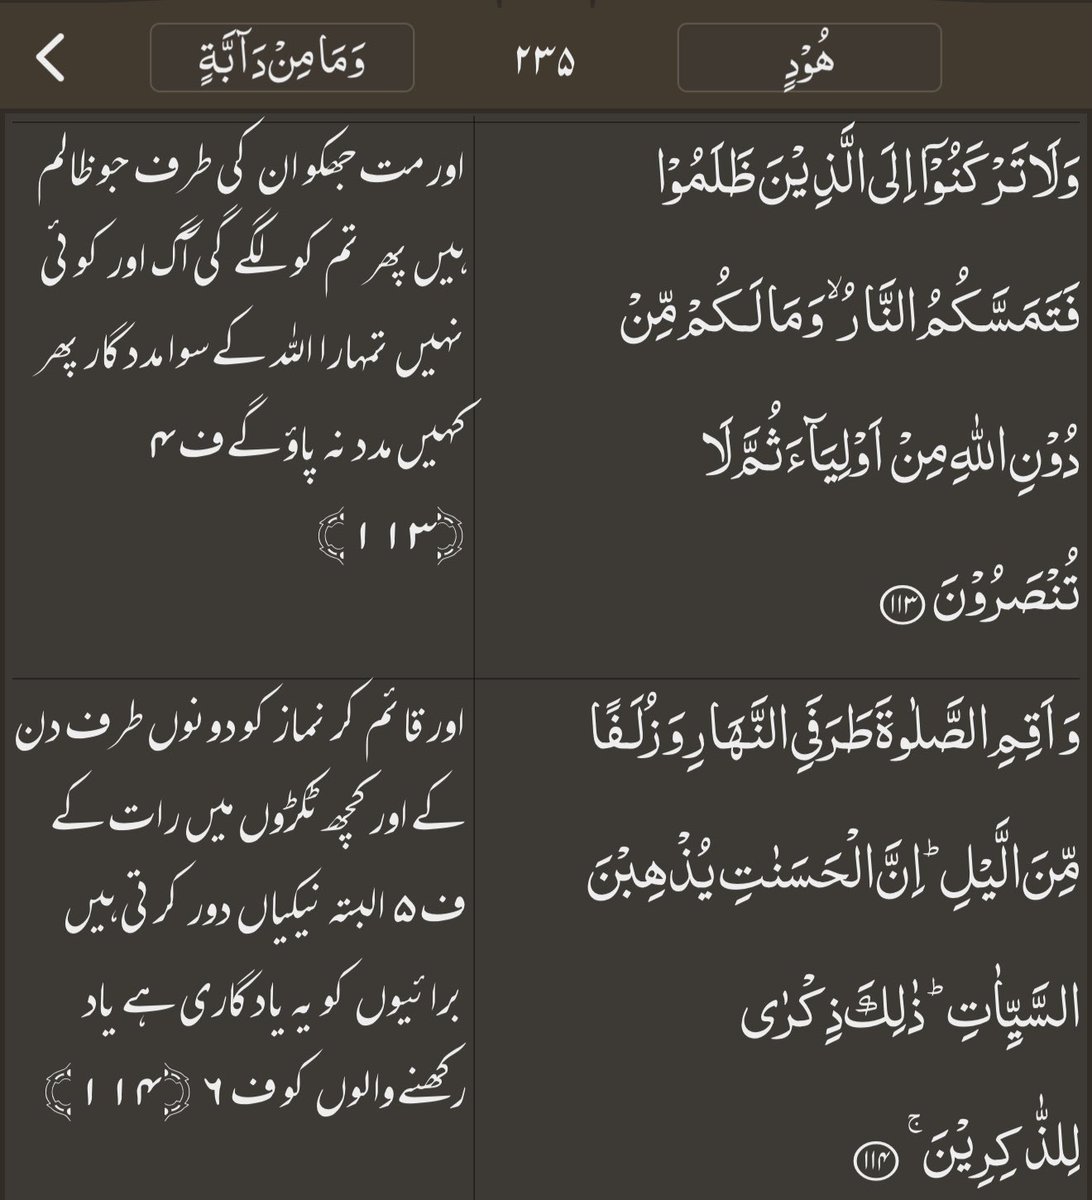 هُوْدٍ
۲۳۵
وَمَا مِنْ دَآبَّةٍ
وَلَا تَرْكَنُوْۤا اِلَى الَّذِيْنَ ظَلَمُوْا
فَتَمَسَّكُمُ النَّارُ ۙ وَمَا لَـكُمْ مِّنْ
دُوْنِ اللّٰهِ مِنْ اَوْلِيَآءَ ثُمَّ لَا
تُنْصَرُوْنَ ﴿۱۱۳﴾
اور مت جھکو ان کی طرف جو ظالم
ہیں پھر تم کو لگے گی آگ اور کوئی
نہیں تمہارا اللہ کے سوا مددگار پھر
کہیں مدد نہ پاؤ گے ف۴
﴿۱۱۳﴾
وَاَقِمِ الصَّلٰوةَ طَرَفَىِ النَّهَارِ وَزُلَـفًا
مِّنَ الَّيْلِ ؕ اِنَّ الْحَسَنٰتِ يُذْهِبْنَ
السَّيِّاٰتِ ؕ ذٰلِكَ ذِكْرٰى
لِلذّٰكِرِيْنَ ۚ ﴿۱۱۴﴾
اور قائم کر نماز کو دونوں طرف دن
کے اور کچھ ٹکڑوں میں رات کے
ف۵ البتہ نیکیاں دور کرتی ہیں
برائیوں کو یہ یادگاری ہے یاد
رکھنے والوں کو ف۶ ﴿۱۱۴﴾